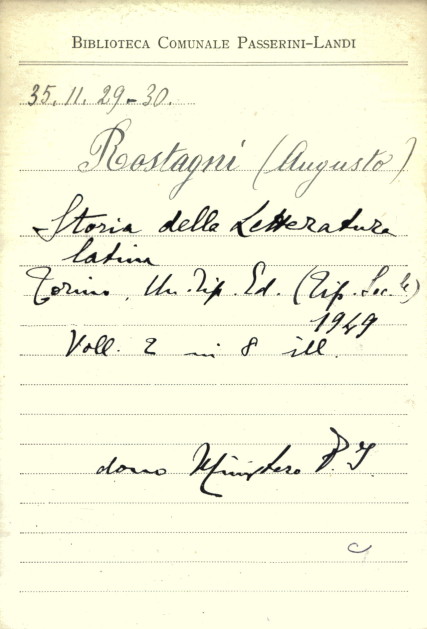 BIBLIOTECA COMUNALE PASSERINI-LANDI
35.11.29-30.
Rostagni (Augusto)
Storia della Letteratura
latina
Torino, Un. Tip. Ed. (Tip. Soc.
1949
Voll. 2 in 8 ill.
dono Ministero P. I.